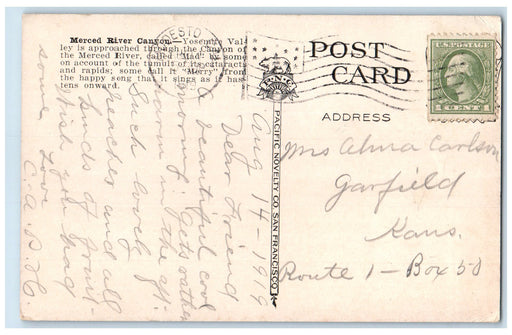 Merced River Canyon—Yosemite Val-
ley is approached through the Canyon of
the Merced River, called "Mad" by some
on account of the tumult of its cataracts
and rapids; some call it "Merry" from
the happy song that it sings as it has-
tens onward.
POST
CARD
ADDRESS
U.S. POSTAGE
1 CENT 1
PACIFIC NOVELTY CO. SAN FRANCISCO
Aug 14 - 1919
Dear Friend
A beautiful cool
morning. Gets rather
warm in the af-
Such lovely
peaches and all
kinds of fruit-
Wish you had
some. Love
Mrs Alma Carlson
Garfield
Kans.
Route 1 - Box 58